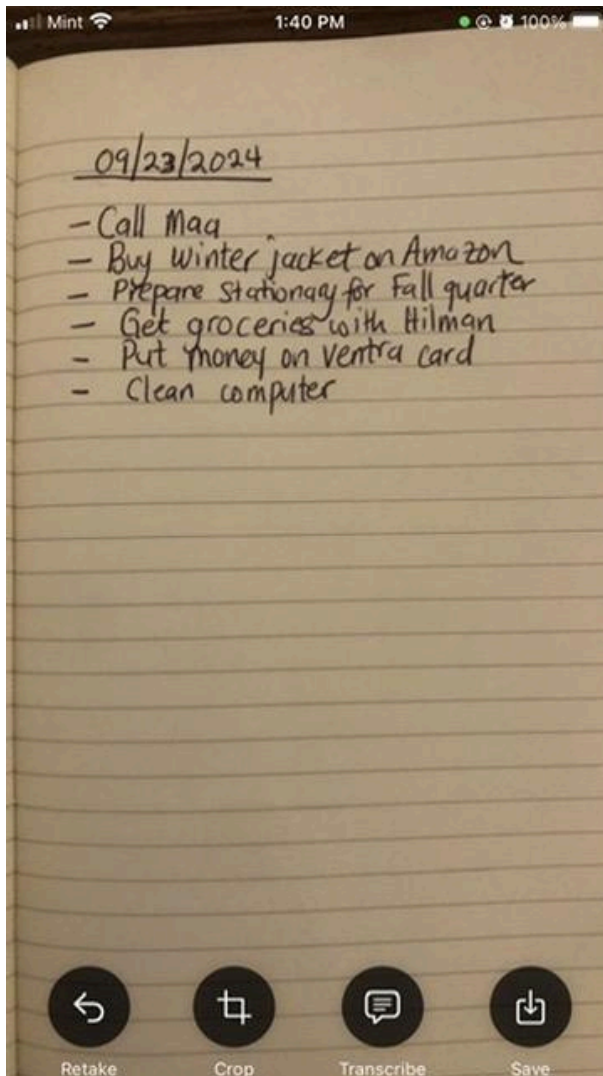 Mint
1:40 PM
100%
09/23/2024
- Call Maa
- Buy winter jacket on Amazon
- Prepare Stationary for Fall quarter
- Get groceries with Hilman
- Put money on Ventra card
- Clean computer
Retake
Crop
Transcribe
Save